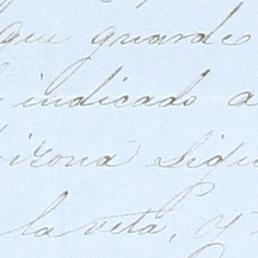 que guarde
indicado a
izona sigu
la veta, y